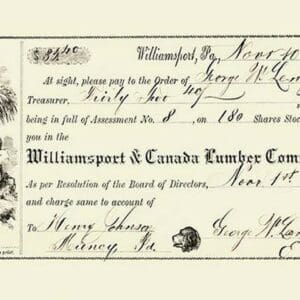 $32 40 Williamsport, Pa, Novr 10
At sight, please pay to the Order of George W. Len
Treasurer, Thirty Two 40
being in full of Assessment No. 8, on 180 Shares Stoc
you in the
Williamsport & Canada Lumber Com
As per Resolution of the Board of Directors, Novr 1st
and charge same to account of
To Henry Johnson George W. Len
Muncy, Pa.